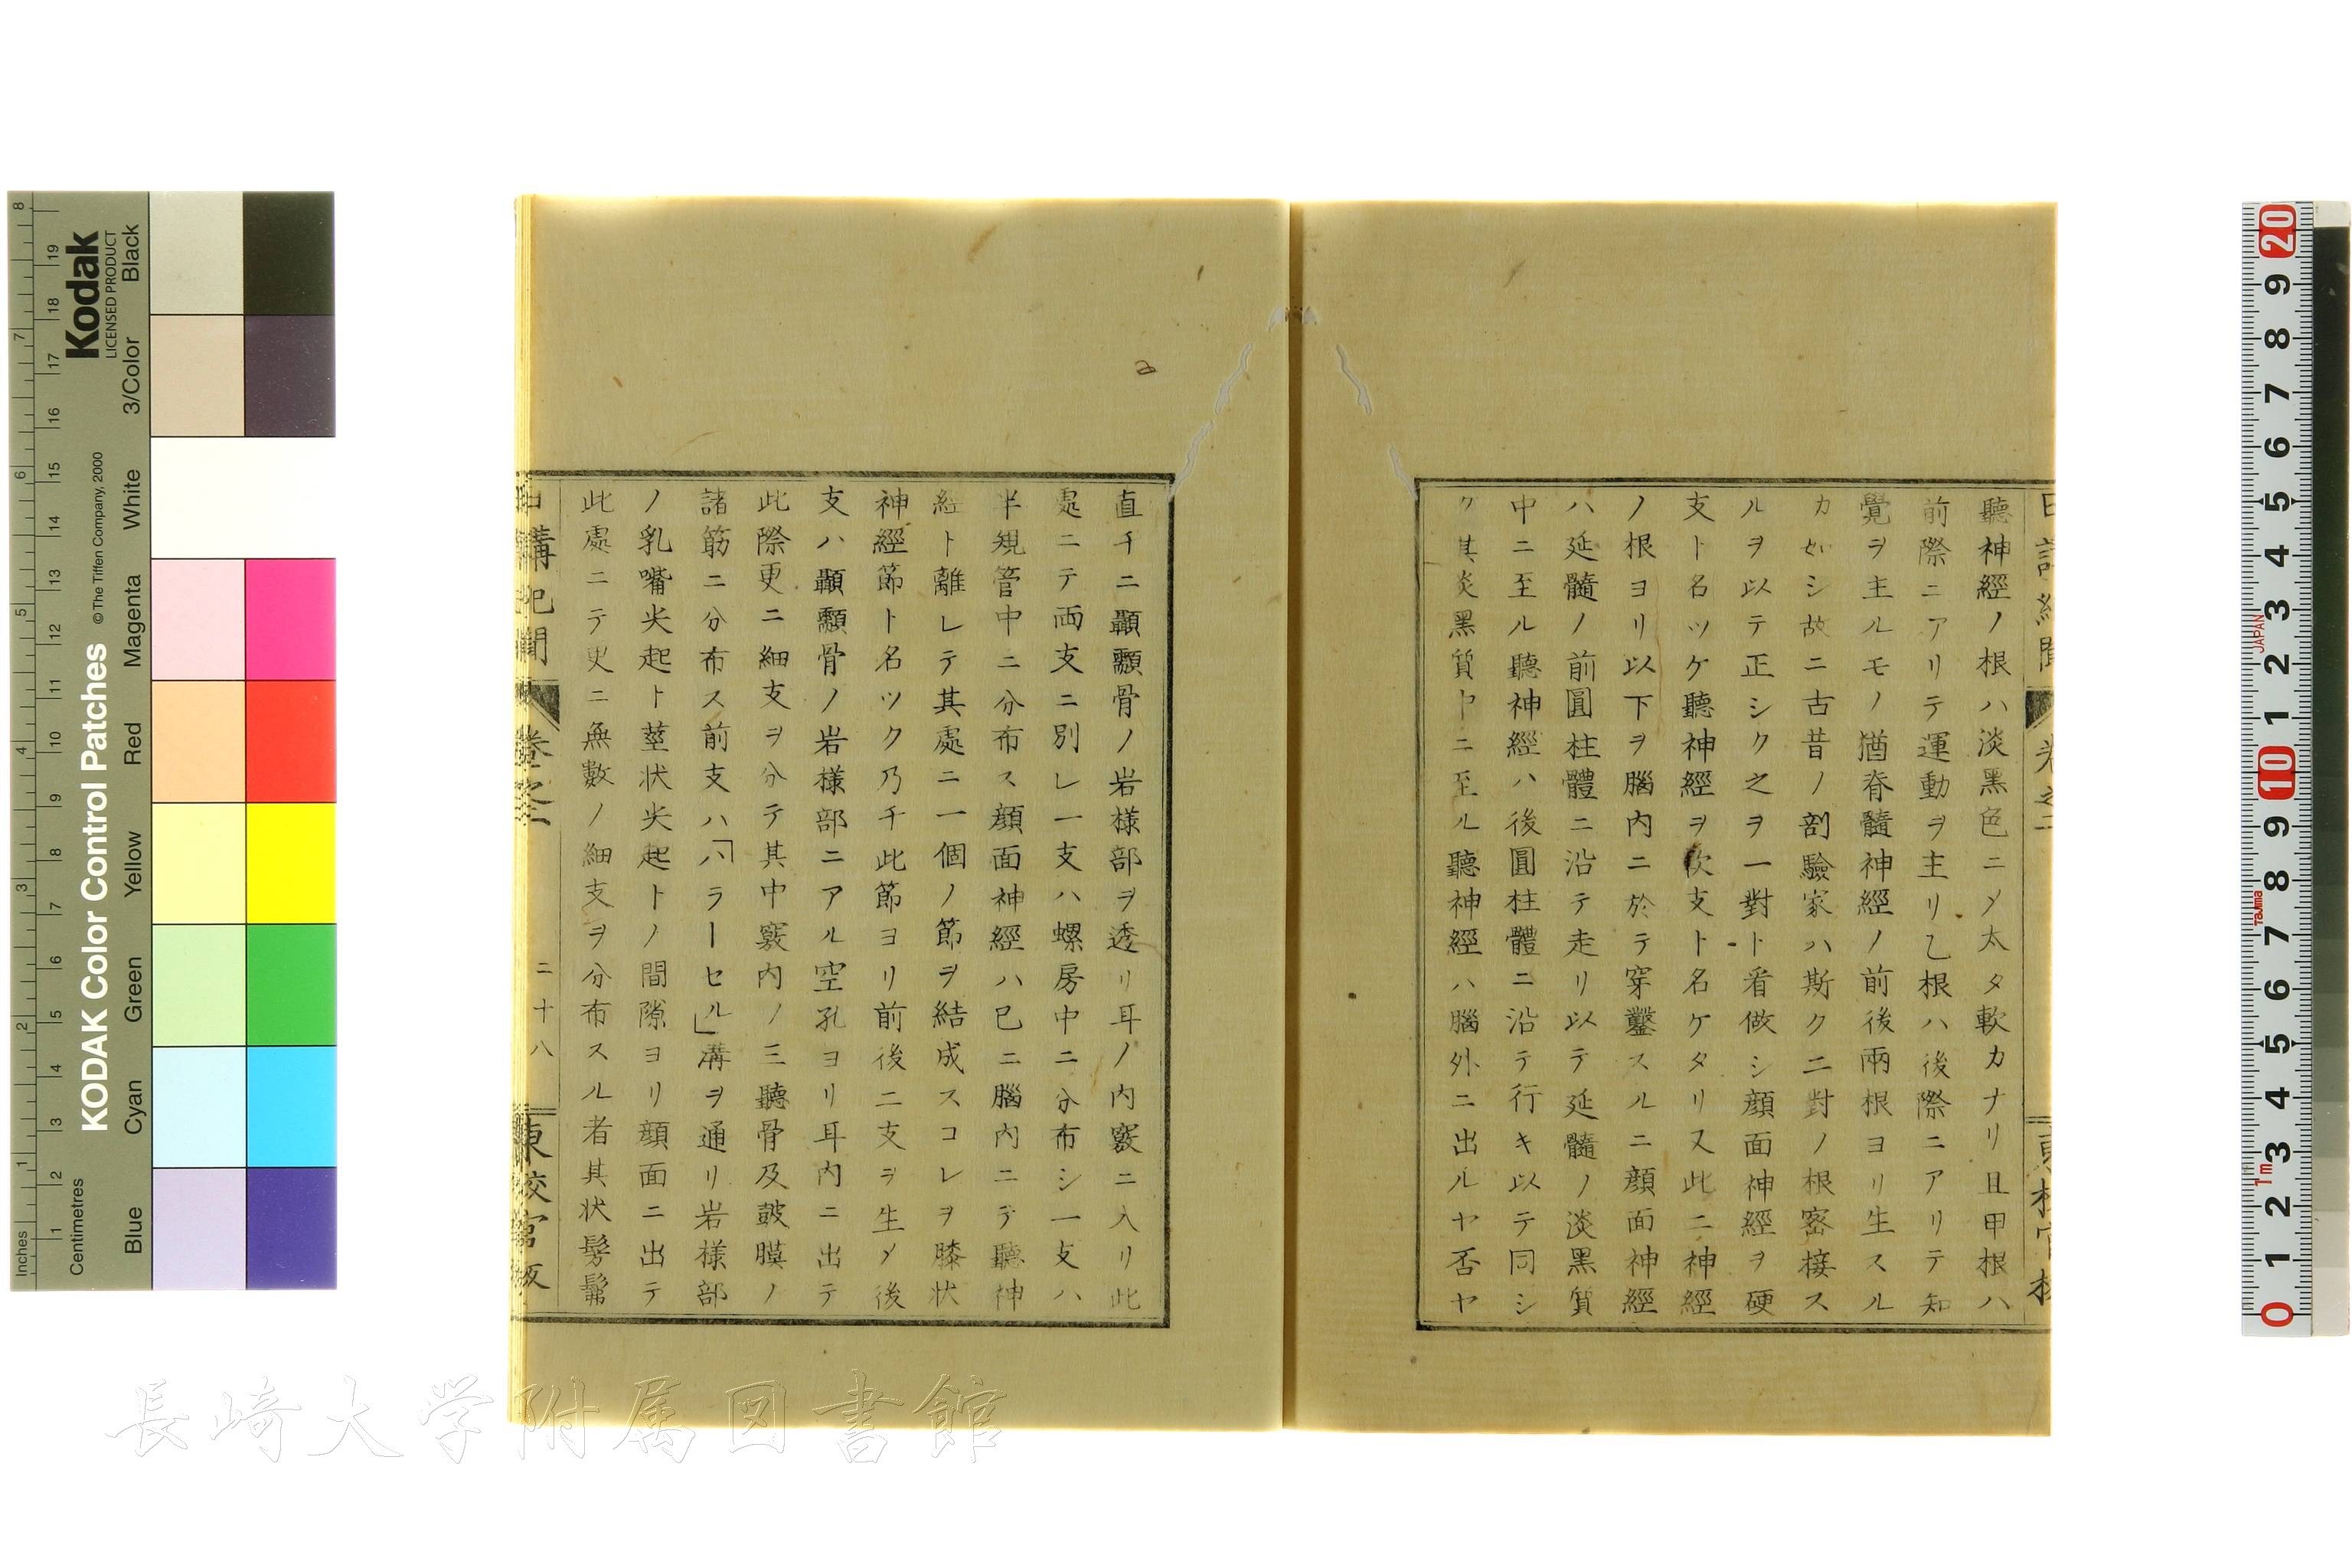 聽神經ノ根ハ淡黑色ニメ太タ軟カナリ且甲根ハ
前際ニアリテ運動ヲ主リ乙根ハ後際ニアリテ知
覺ヲ主ルモノ猶脊髓神經ノ前後兩根ヨリ生スル
カ如シ故ニ古昔ノ剖驗家ハ斯ク二對ノ根密接ス
ルヲ以テ正シク之ヲ一對ト看做シ顔面神經ヲ硬
支ト名ツケ聽神經ヲ軟支ト名ケタリ又此二神經
ノ根ヨリ以下ヲ腦内ニ於テ穿鑿スルニ顔面神經
ハ延髓ノ前圓柱體ニ沿テ走リ以テ延髓ノ淡黑質
中ニ至ル聽神經ハ後圓柱體ニ沿テ行キ以テ同シ
ク其淡黑質中ニ至ル聽神經ハ腦外ニ出ルヤ否ヤ
直チニ顳顬骨ノ岩様部ヲ透リ耳ノ内竅ニ入リ此
處ニテ両支ニ別レ一支ハ螺房中ニ分布シ一支ハ
半規管中ニ分布ス顔面神經ハ已ニ腦内ニテ聽神
經ト離レテ其處ニ一個ノ節ヲ結成スコレヲ膝状
神經節ト名ツク乃チ此節ヨリ前後二支ヲ生メ後
支ハ顳顬骨ノ岩様部ニアル空孔ヨリ耳内ニ出テ
此際更ニ細支ヲ分テ其中竅内ノ三聽骨及皷膜ノ
諸筋ニ分布ス前支ハ「ハラーセル」溝ヲ通リ岩様部
ノ乳嘴尖起ト莖状尖起トノ間隙ヨリ顔面ニ出テ
此處ニテ更ニ無數ノ細支ヲ分布スル者其状髣髴
日講紀聞 卷之二 二十八 東校官版
長崎大学附属図書館
KODAK Color Control Patches
© The Tiffen Company, 2000
Kodak
LICENSED PRODUCT
Inches
Centimetres
Blue Cyan Green Yellow Red Magenta White 3/Color Black
JAPAN
Tajima
1m